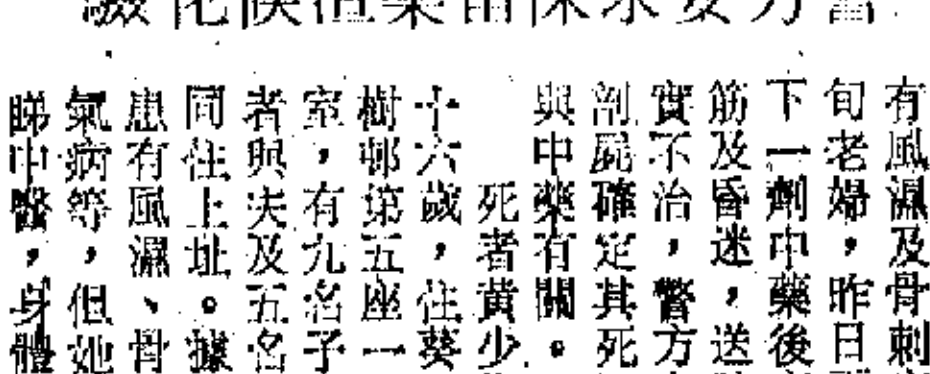 警方要求保留藥渣俟化驗
有風濕及骨刺
旬老婦，昨日
下一劑中藥後
筋及昏迷，送
實不治，警方
剖屍確定其死
與中藥有關。
死者黃少
十六歲，住葵
樹邨第五座一
室，有九名子
者與夫及五名
同住上址。據
患有風濕、骨
氣病等，但她
睇中醫，身體